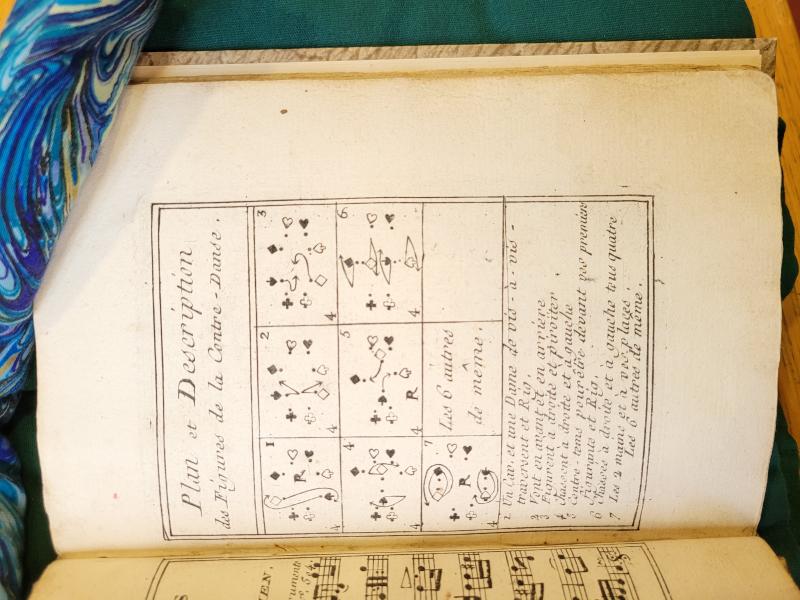 Plan et Description
des Figures de la Contre-Danse.
1
2
3
R
4
4
4
4
5
6
R
4
4
4
7
R
4
Les 6 autres
de même.
1 Un Cav. et une Dame de vis-à-vis-
traversent et Rig.
2 Vont en avant et en arrière
3 Figurent à droite et piroiter
4 chassent à droite et à gauche
5 Contre-tems pour être devant vos premiers
Figurants et Rig.
6 Chassés à droite et à gauche tous quatre
7. Les 2 mains et à vos places.
Les 6 autres de même.